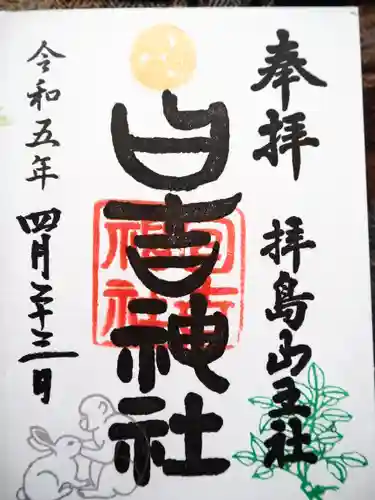 奉拝
拝島山王社
日吉神社
日吉
神社
令和五年
四月二十三日